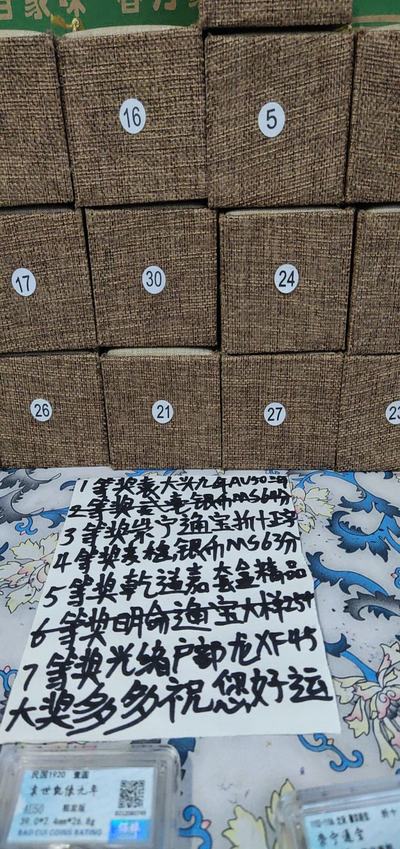 16
5
17
30
24
26
21
27
23
1等奖袁大头九年AU50
2等奖 银币MS64分
3等奖崇宁通宝折十
4等奖 银币MS63分
5等奖乾道嘉套盒精品
6等奖明命通宝大样25
7等奖光绪户部龙XF45
大奖多多祝您好运
民国1920 壹圆
袁世凯像九年
AU50
39.0*2.4mm*26.8g
BAO CUI COINS RATING
崇宁通宝